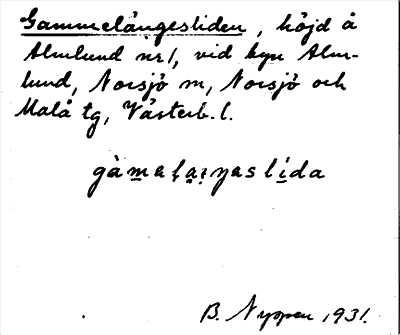 Gammelängesliden, höjd å
Almlund nr 1, vid byn Alm-
lund, Norsjö sn, Norsjö och
Malå tg, Västerb. l.
B. Nyppen 1931.